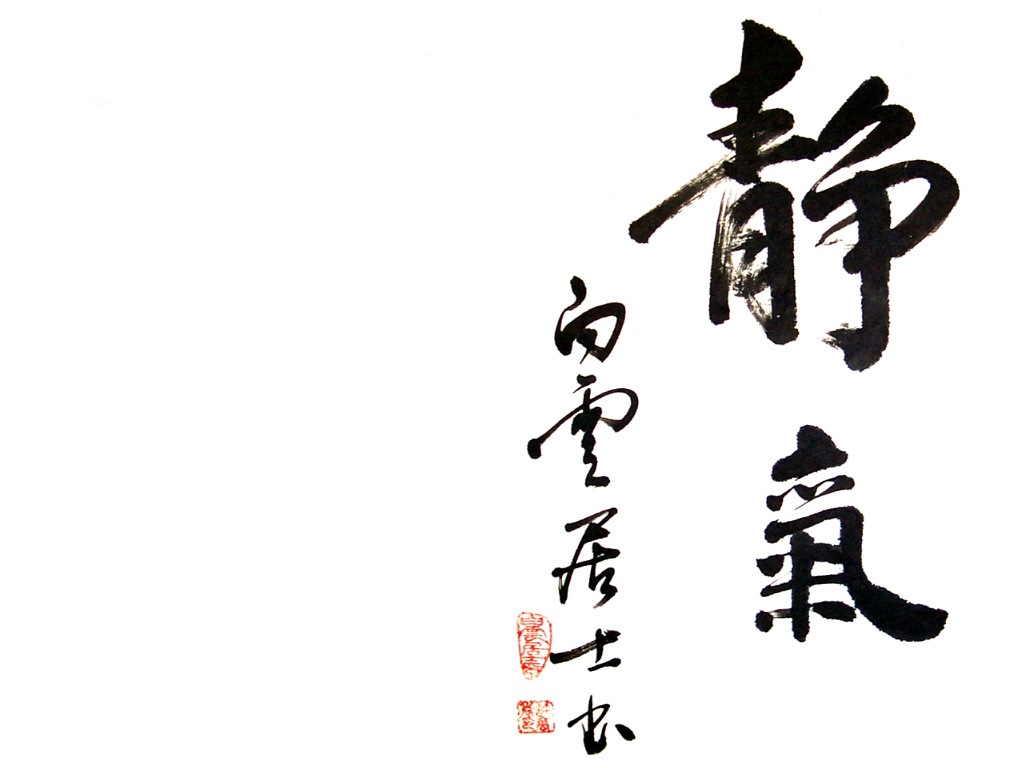 靜氣
白雲居士书